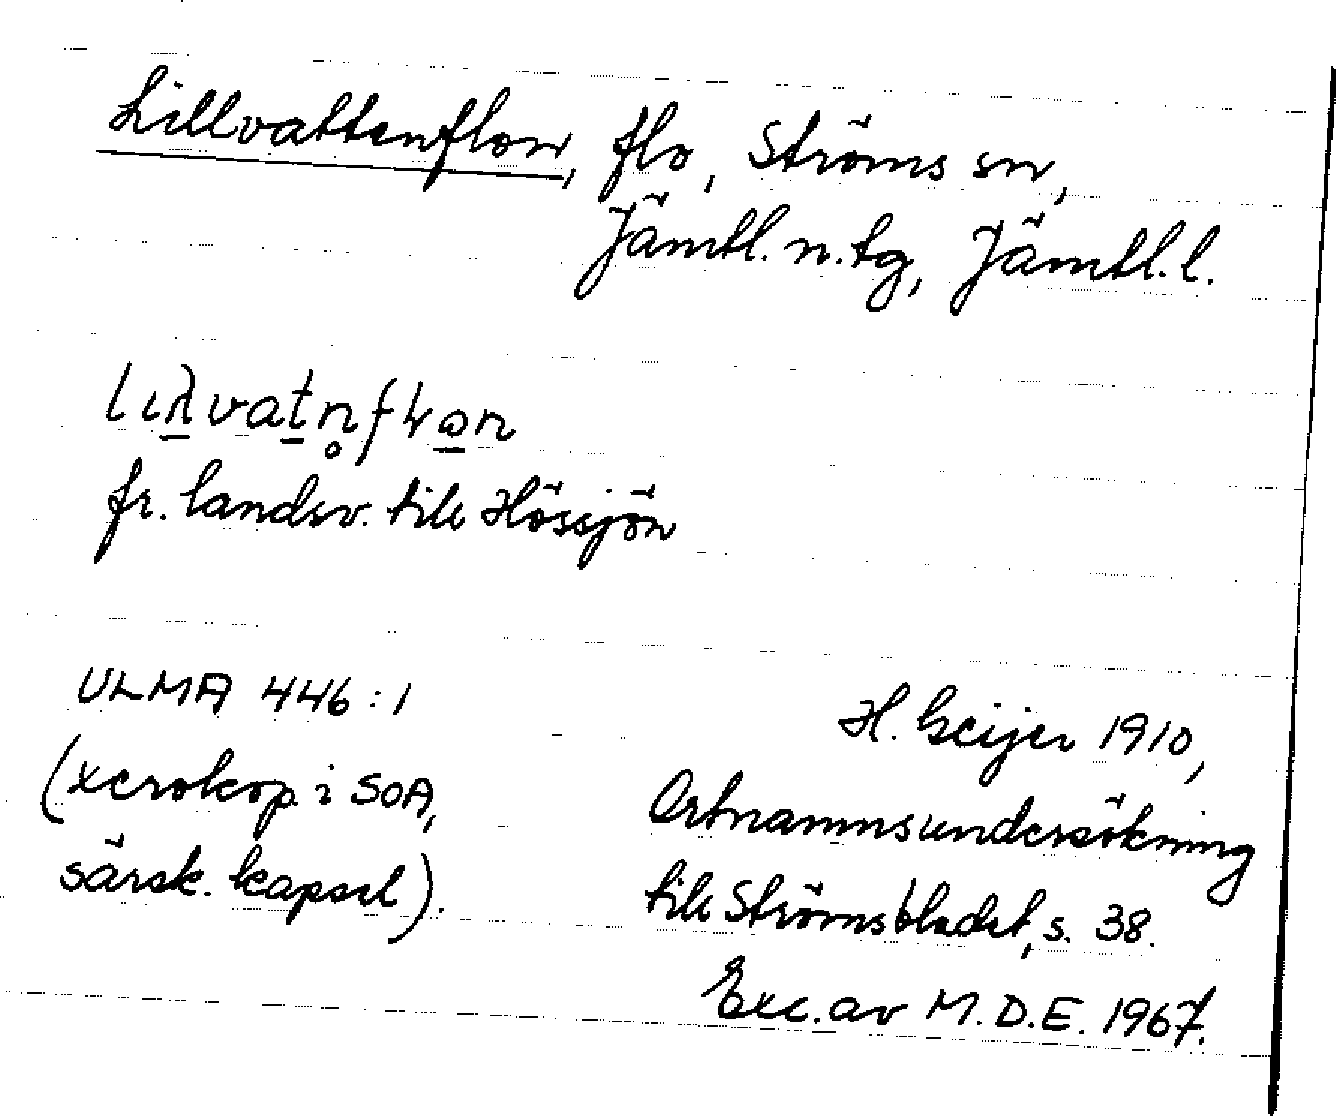 Lillvattenflon, flo, Ströms sn,
Jämtl. n. tg, Jämtl. l.
fr. landsv. till Hössjön
ULMA 446:1
(xerokop. i SOA,
särsk. kapsel).
H. Geijer 1910,
Ortnamnsundersökning
till Strömsbladet, s. 38.
Exc. av M.D.E. 1967.